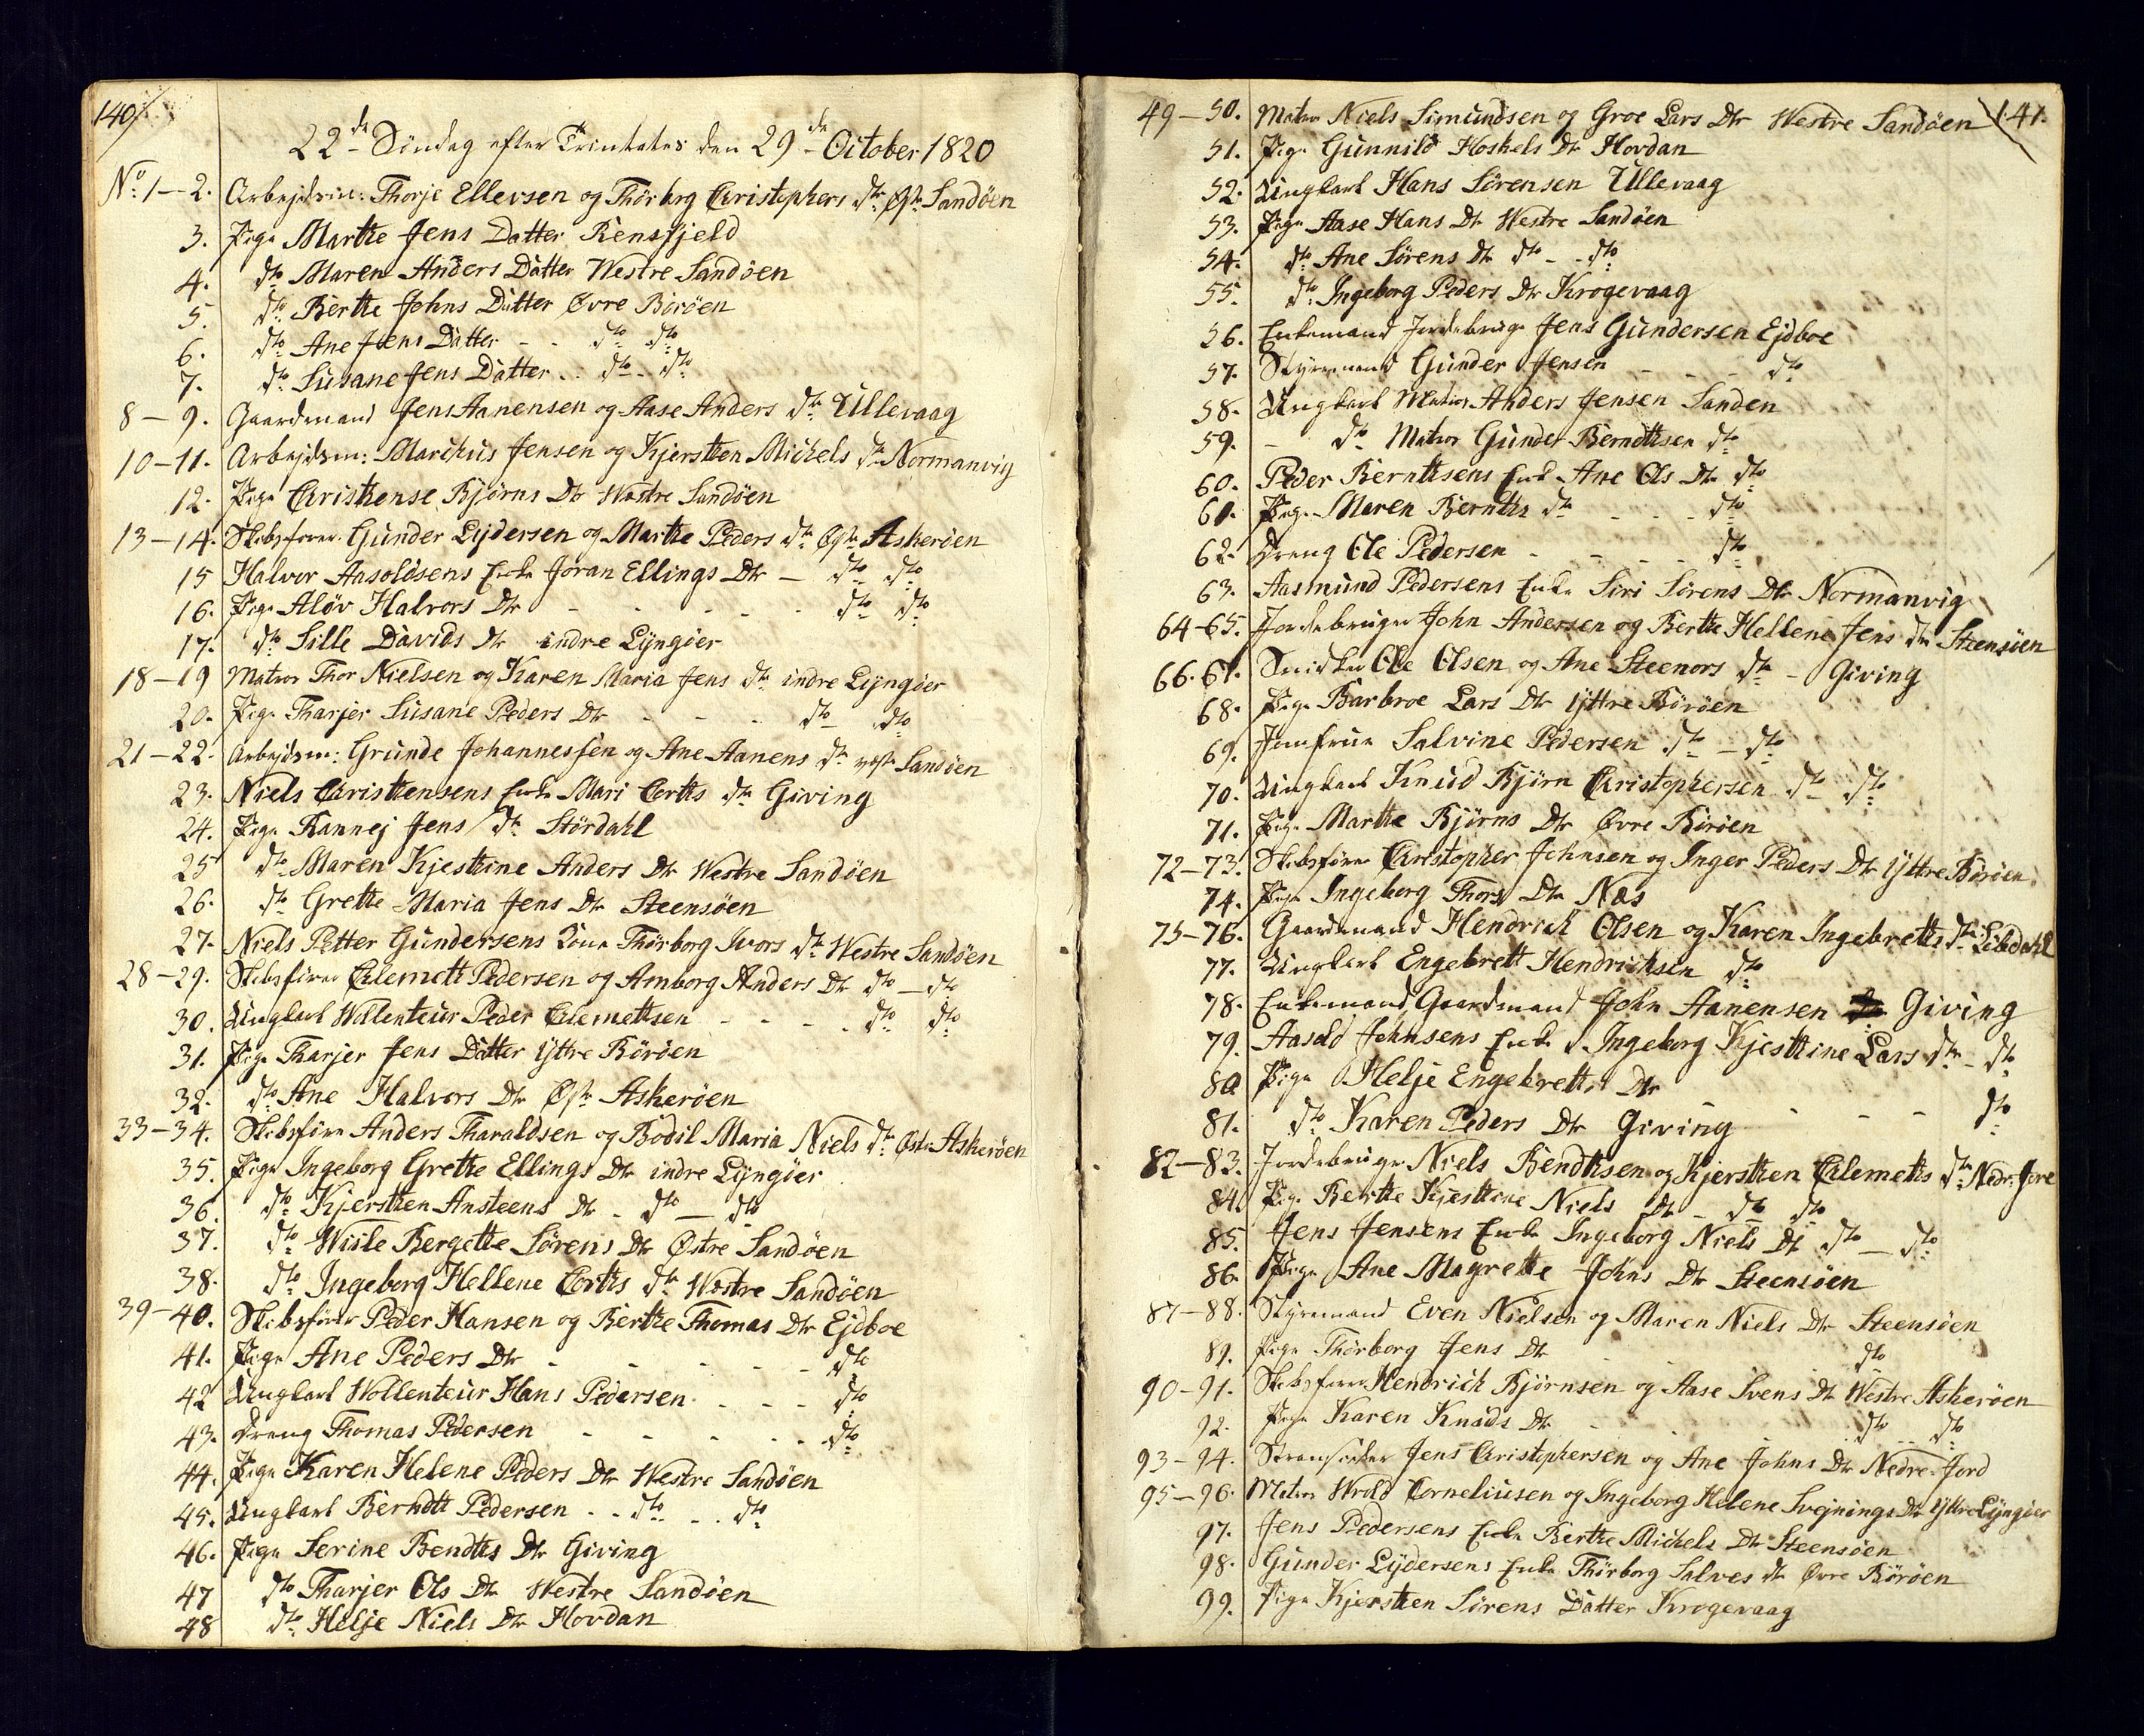 140/
22de Söndag efter Trinitates den 29de October 1820
No. 1–2. Arbejdsm: Thorje Ellevsen og Thörborg Christophers dtr Øst: Sandöen
3. Pige Marthe Jens Datter Rensfjeld
4. dto Maren Anders Datter Westre Sandöen
5. dto Berthe Johns Datter Øvre Boröen
6. dto Ane Jens Datter - - dto dto
7. dto Susane Jens Datter - - dto - dto
8–9. Gaardmand Jens Aanensen og Aase Anders dtr Ullevaag
10–11. Arbejdsm: Marchus Jensen og Kjersthen Michels dtr Normanvig
12. Pige Christhense Bjørns Dtr Westre Sandöen
13–14. Skibsförer Gunder Lydersen og Marthe Peders dtr Øst: Askeröen
15 Halvor Aasoldsens Enke Joran Ellings Dtr – dto dto
16. Pige Aløv Halvors Dtr - - - - - dto dto
17. dto Sille Davids dtr indre Lyngöer
18–19 Matros Thor Nielsen og Karen Maria Jens dtr indre Lyngöer
20. Pige Tharjer Susane Peders Dtr - - - dto dto
21–22. Arbejdsm: Grunde Johannessen og Ane Aanens dtr vest: Sandöen
23. Niels Christhensens Enke Mari Corths dtr Giving
24. Pige Kannej Jens dtr Stördahl
25 dto Maren Kjesthine Anders Dtr Westre Sandöen
26. dto Grethe Maria Jens Dtr Steensöen
27. Niels Petter Gundersens Kone Thörborg Ivors dtr Westre Sandöen
28–29. Skibsförer Clemeth Pedersen og Amborg Anders Dtr dto – dto
30. Ungkarl Wollenteur Peder Clemethsen - - - - dto dto
31. Pige Tharjer Jens Datter Yttre Böröen
32. dto Ane Halvors Dtr Øst: Askeröen
33–34. Skibsförer Anders Tharaldsen og Bodil Maria Niels dtr Øst: Askeröen
35. Pige Ingeborg Grethe Ellings Dtr indre Lyngöer
36. dto Kjersthen Ansteens Dtr - dto – dto
37. dto Wisle Bergette Sörens Dtr Østre Sandöen
38. dto Ingeborg Hellene Corths dtr Westre Sandöen
39–40. Skibsförer Peder Hansen og Berthe Thomas Dtr Ejdboe
41. Pige Ane Peders Dtr - - - - - dto
42 Ungkarl Wollenteur Hans Pedersen - - - dto
43. Dreng Thomas Pedersen - - - - - dto
44. Pige Karen Helene Peders Dtr Westre Sandöen
45. Ungkarl Berndt Pedersen - - dto - - dto
46. Pige Serine Bendths Dtr Giving
47 dto Tharjer Ols Dtr Westre Sandöen
48 dto Helje Niels Dtr Hovdan
141.
49–50. Matros Niels Simundsen og Groe Lars Dtr Westre Sandöen
51. Pige Gunnild Hoskels Dtr Hovdan
52. Ungkarl Hans Sørensen Ullevaag
53. Pige Aase Hans Dtr Westre Sandöen
54. dto Ane Sørens Dtr dto - - dto
55. dto Ingeborg Peders Dtr Krogevaag
56. Enkemand Jordebruger Jens Gundersen Ejdboe
57. Styrmand Gunder Jensen - - - dto
58. Ungkarl Matros Anders Jensen Sanden
59. - dto Matros Gunder Berndthsen dto
60. Peder Bernthsens Enke Ane Ols Dtr dto
61. Pige Maren Bernths dtr - - - dto
62. Dreng Ole Pedersen - - - - dto
63. Aasmund Pedersens Enke Siri Sørens Dtr Normanvig
64–65. Jordebruger John Andersen og Berthe Hellene Jens dtr Steensöen
66.67. Snidker Ole Olsen og Ane Steenors dtr - Giving
68. Pige Barbroe Lars Dtr Yttre Böröen
69. Jomfrue Salvine Pedersen dto – dto
70. Ungkarl Knud Bjørn Christophersen dto dto
71. Pige Marthe Bjørns Dtr Øvre Böröen
72–73. Skibsförer Christopher Johnsen og Inger Peders Dtr Yttre Böröen
74. Pige Ingeborg Thors Dtr Næs
75–76. Gaardmand Hendrich Olsen og Karen Ingebreths dtr Libdahl
77. Ungkarl Engebrett Hendrichsen dto
78. Enkemand Gaardmand John Aanensen Giving
79. Aasold Johnsens Enke Ingeborg Kjesthine Lars dtr - dto
80. Pige Helje Engebretts Dtr - - - - dto
81. dto Karen Peders Dtr Giving
82–83. Jordebruger Niels Bendthsen og Kjersthen Clemeths dtr Nedr: Jore
84. Pige Berthe Kjesthine Niels Dtr - dto dto
85. Jens Jensens Enke Ingeborg Niels Dtr dto – dto
86. Pige Ane Magrethe Johns Dtr Steensöen
87–88. Styrmand Even Nielsen og Maren Niels Dtr Steensöen
89. Pige Thörborg Jens Dtr - - - dto
90–91. Skibsförer Hendrich Bjørnsen og Aase Svens Dtr Westre Askeröen
92. Pige Karen Knuds Dtr - - - dto - dto
93–94. Jens Christophersen og Ane Johns Dtr Nedre Jord
95–96. Matros Wrold Corneliusen og Ingeborg Helene Svejnings Dtr Yttre Lyngöer
97. Jens Pedersens Enke Berthe Michels Dtr Steensöen
98. Gunder Lydersens Enke Thörborg Salves dtr Øvre Böröen
99. Pige Kjersthen Sörens Datter Krogevaag